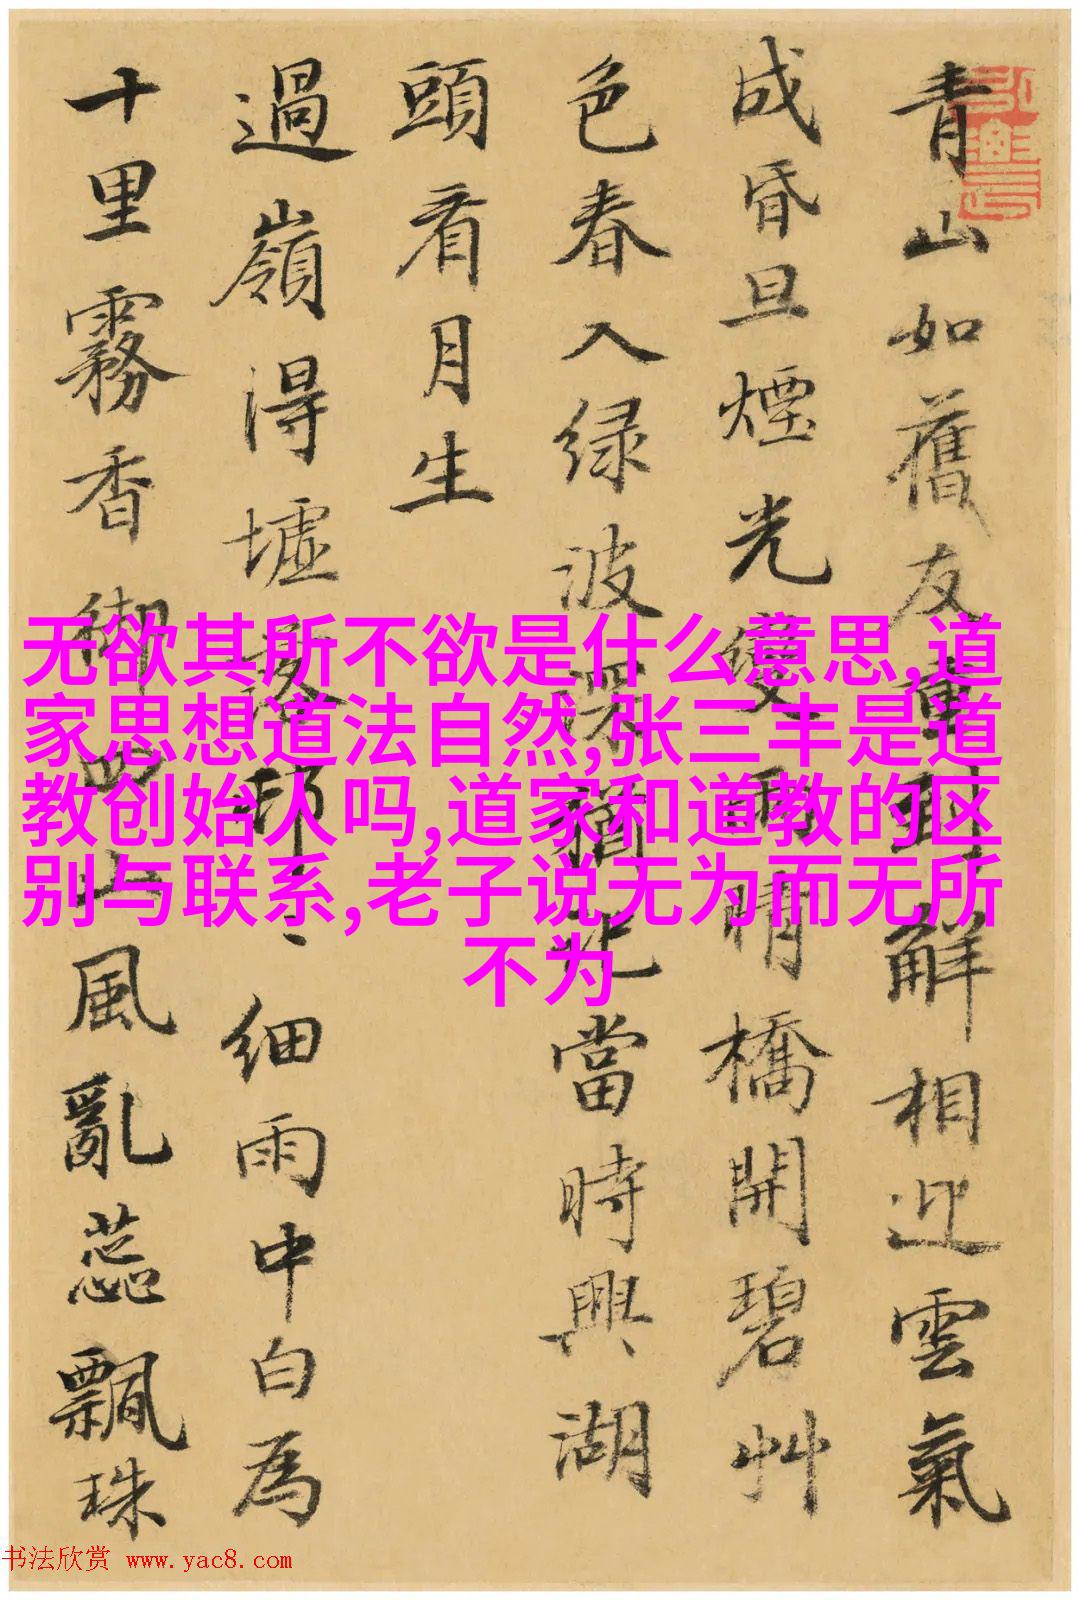 青山如舊友重對解相迎雲氣
成昏旦煙光變雨晴橋開碧艸
色春入绿波深猶把當時興湖
頭看月生
過嶺得墟落邨丶细雨中白為
十里霧香御四山風亂蕊飄珠
无欲其所不欲是什么意思,道
家思想道法自然,张三丰是道
教创始人吗,道家和道教的区
别与联系,老子说无为而无所
不为
书法欣赏 www.yac8.com